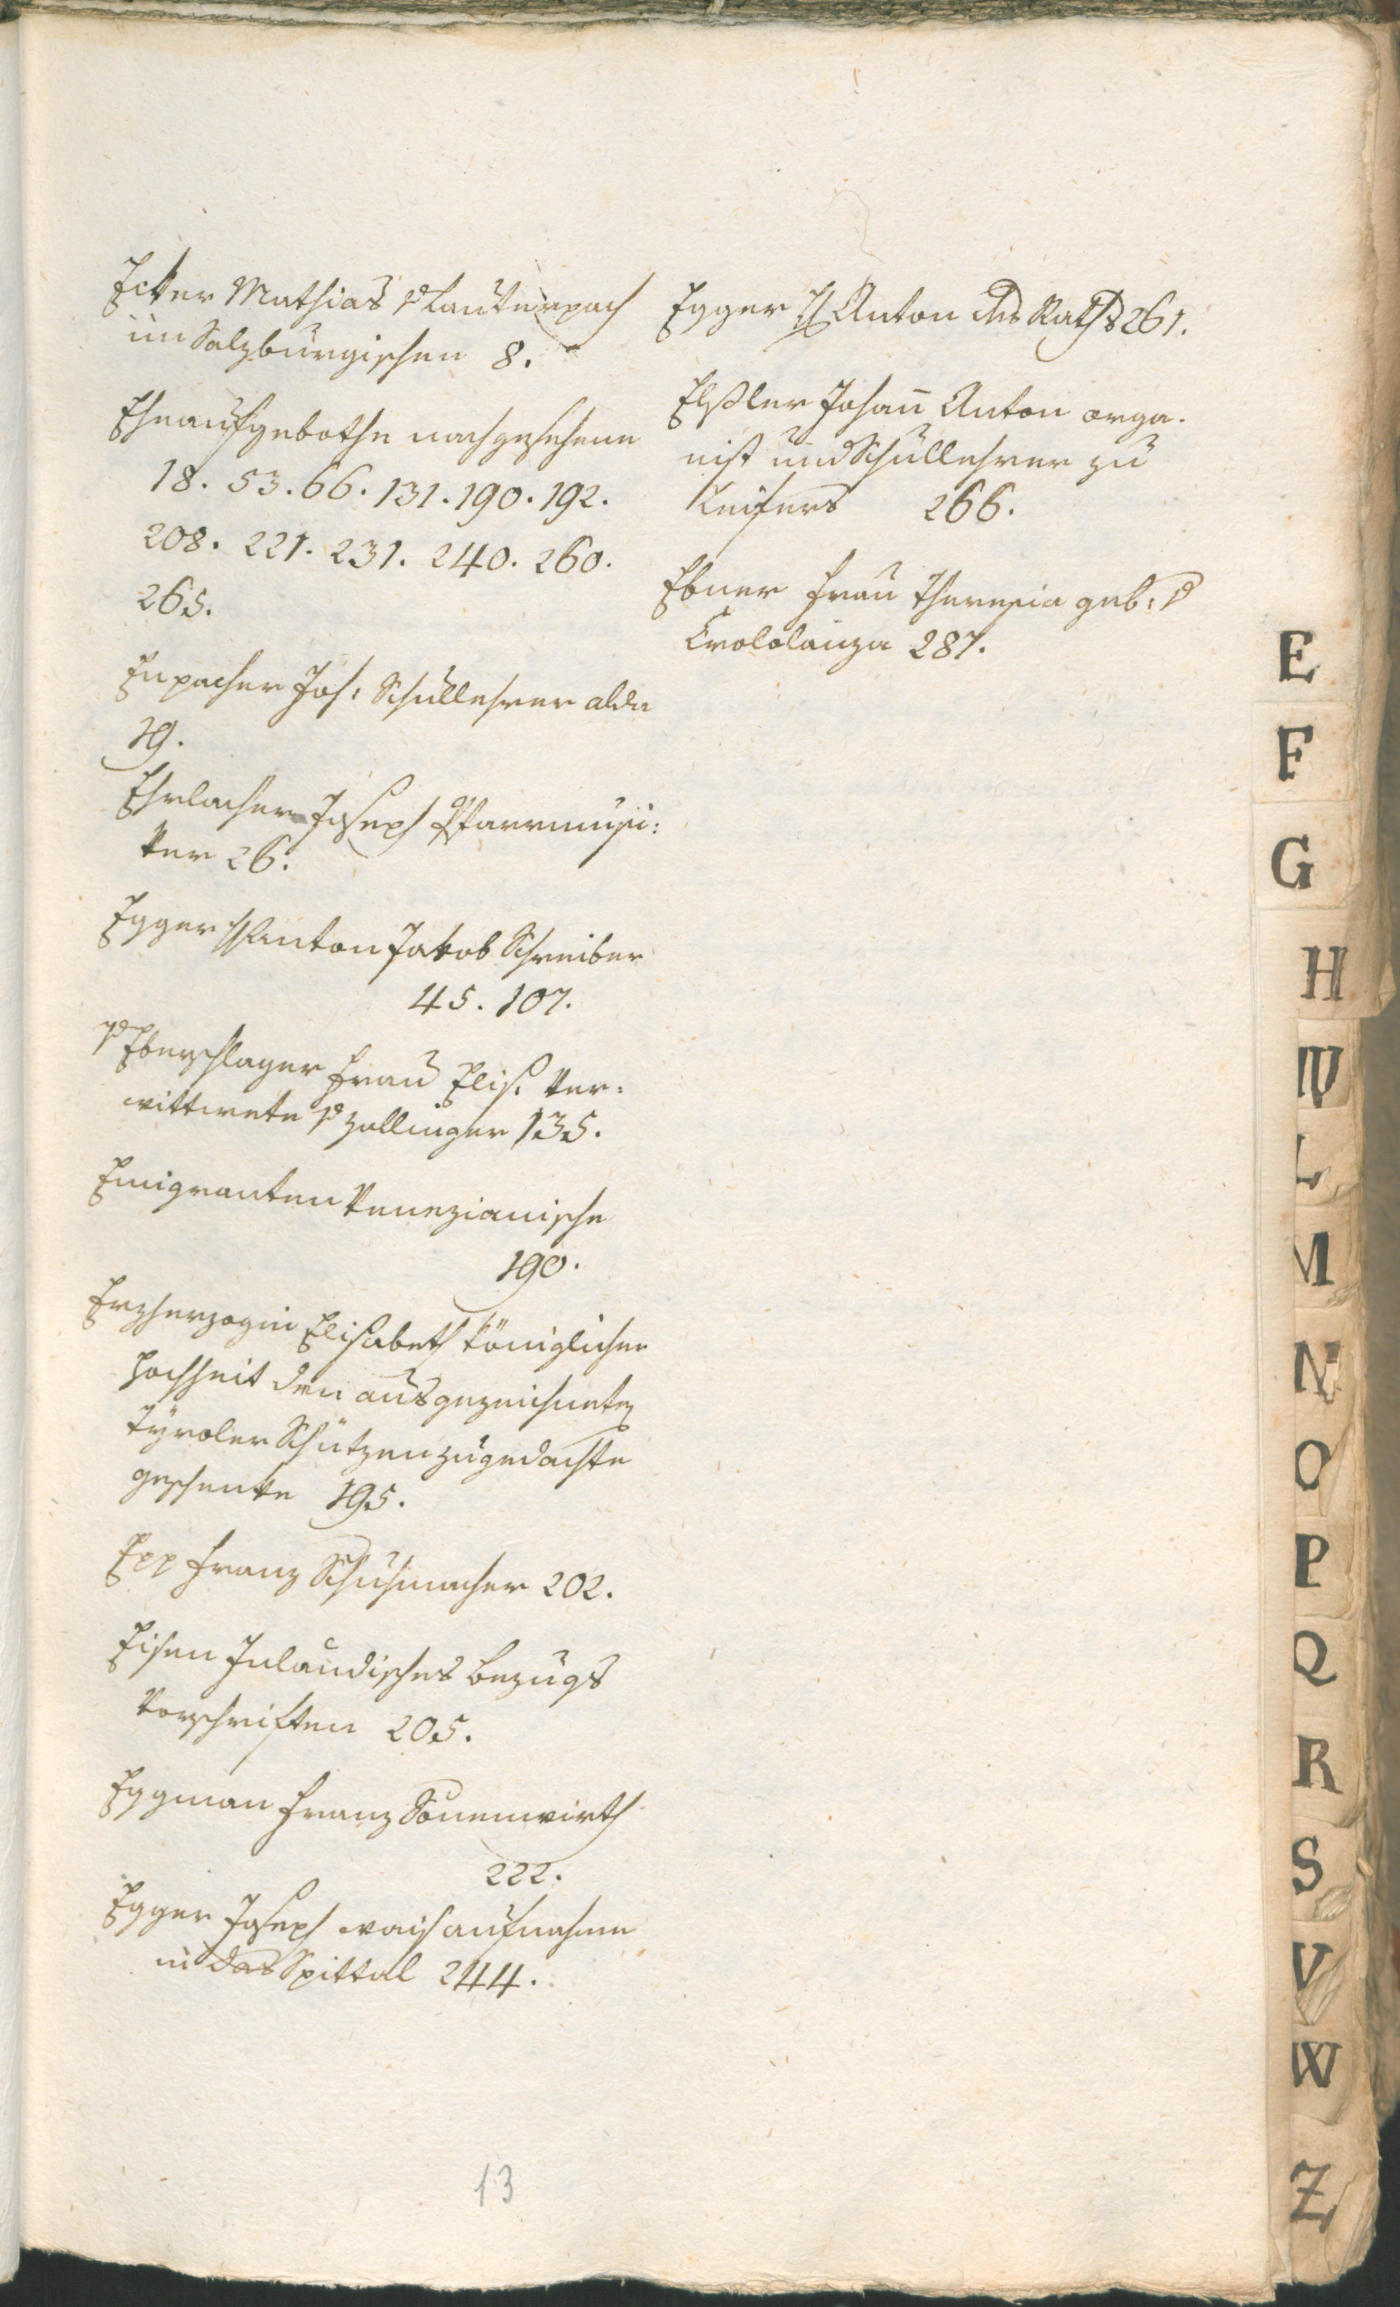 Ecker Mathias v Lauterpach
im Salzburgischen 8.
Eheaufgebothe nachgesehene
18. 53. 66. 131. 190. 192.
208. 221. 231. 240. 260.
265.
Enpacher Jos: Schullehrer alda
19.
Ehrlacher Joseph Pfarrmusi:
ker 26.
Egger H Anton Jakob Schreiber
45. 107.
v Eberschlager Frau Elis. ver:
wittwete v Zallinger 135.
Emigranten Venezianische
190.
Erzherzogin Elisabeth königlicher
Hochheit den ausgezeichneten
Tyroler Schützen zugedachte
geschenke 195.
Epp Franz Schuhmacher 202.
Eisen Inländisches Bezugs
Vorschriften 205.
Eggman Franz Sonenwirth
222.
Egger Joseph Wais aufnahme
in das Spittal 244.
Egger H Anton des Raths 261.
Elsler Johann Anton orga.
nist und Schullehrer zu
Leifers 266.
Ebner Frau Theresia geb: v
Crololanza 287.
13
E
F
G
H
IV
L
M
N
O
P
Q
R
S
V
W
Z